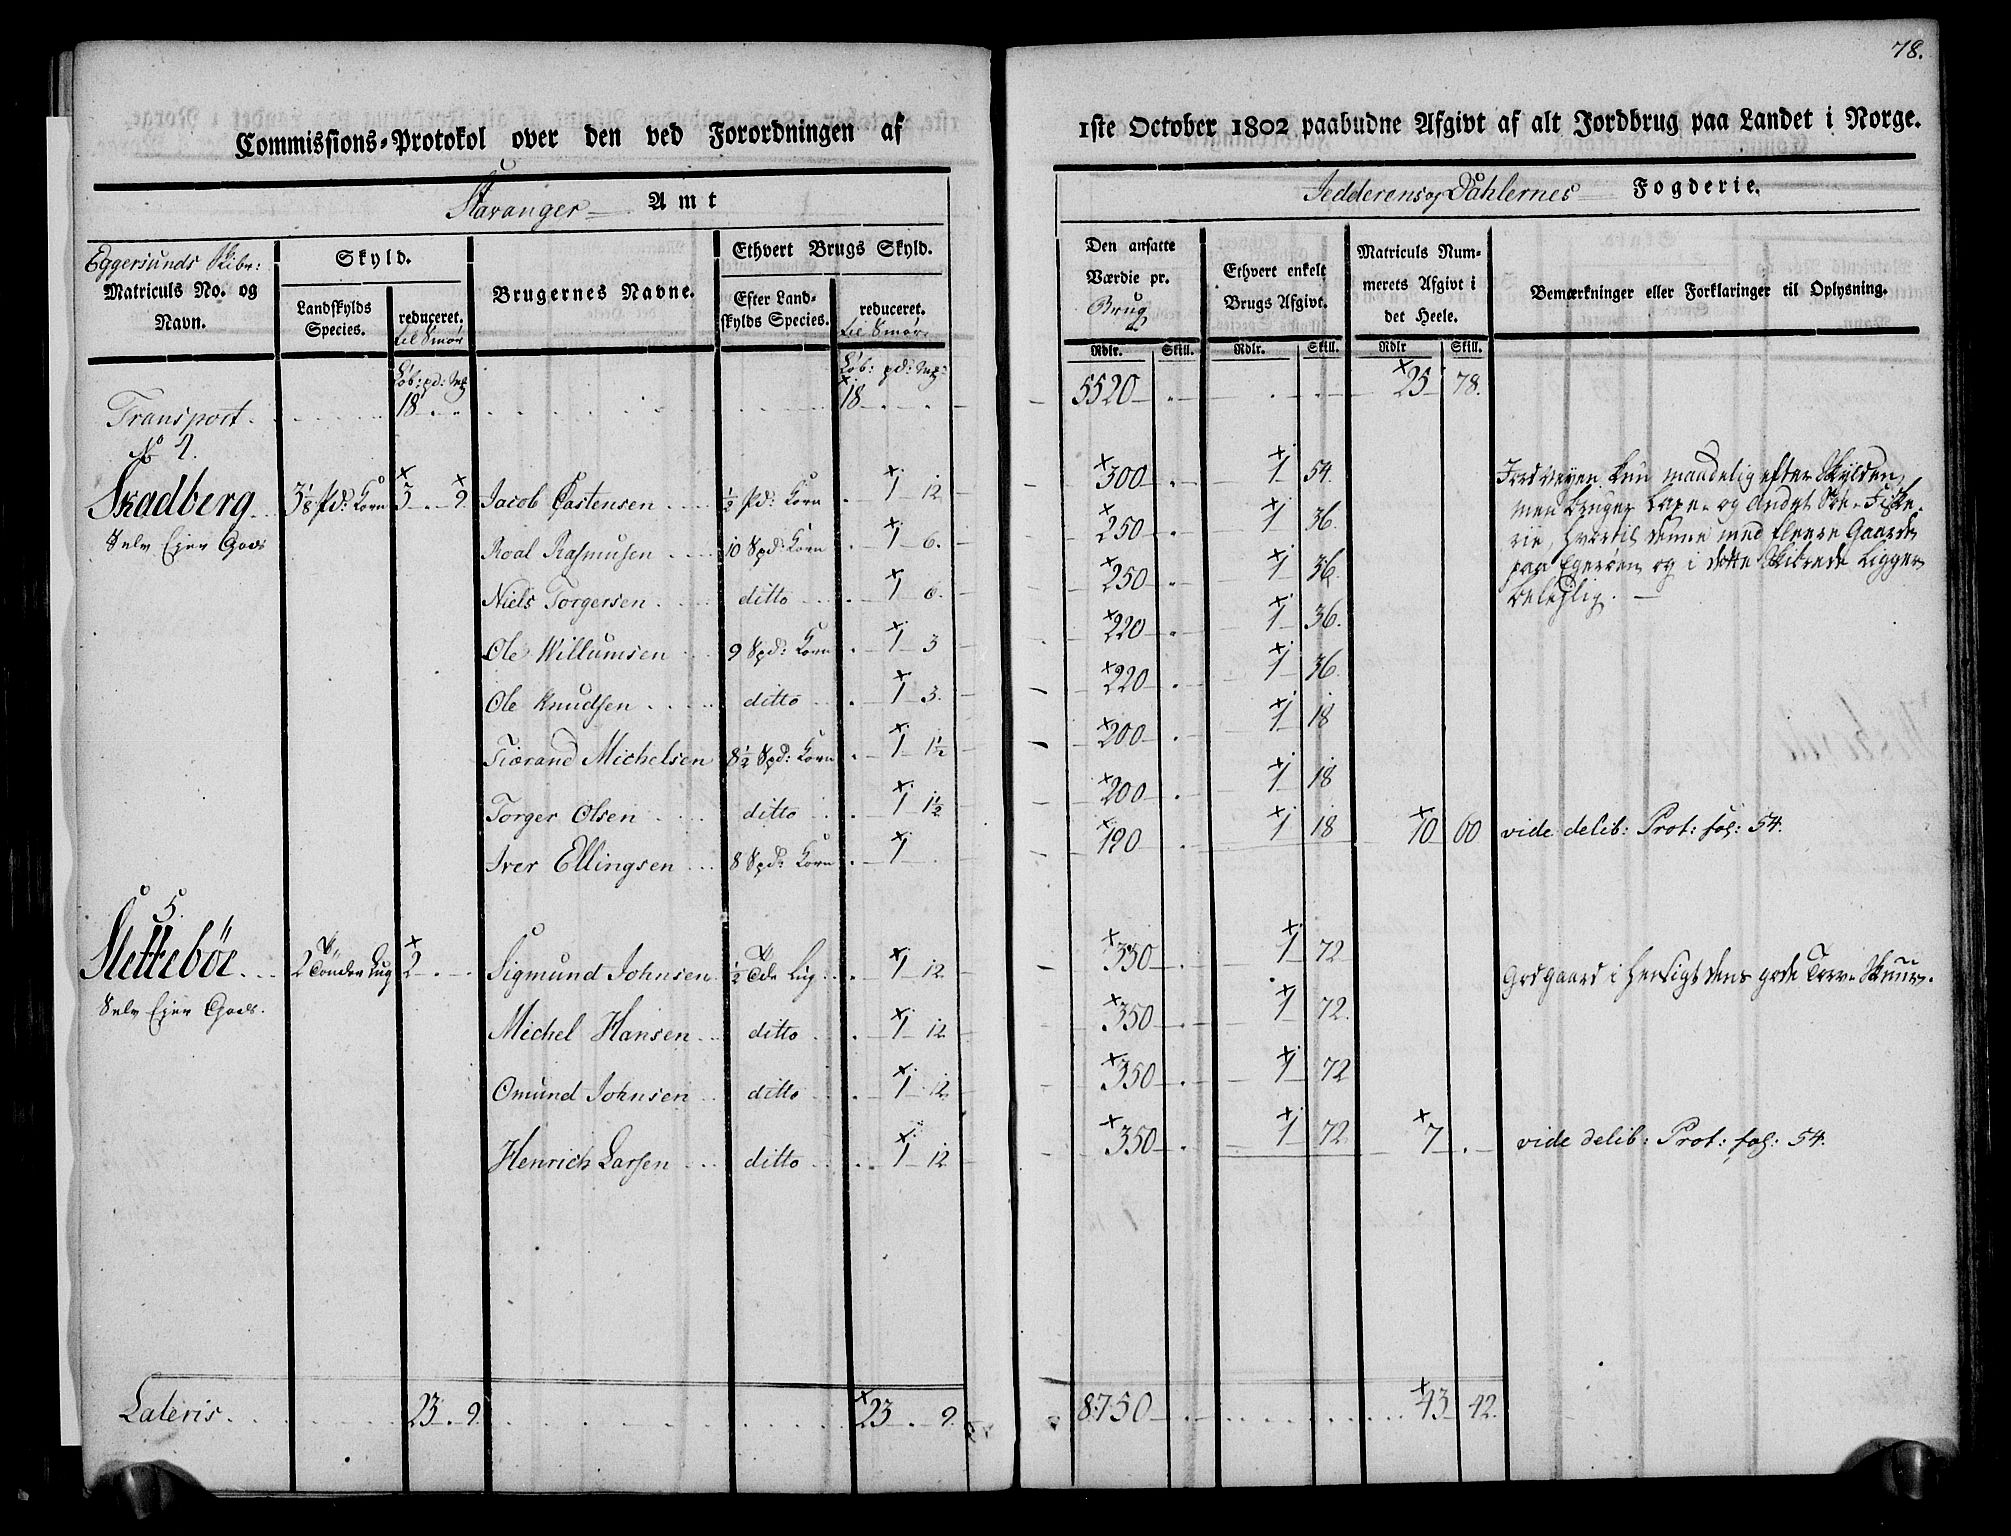 78.
Commissions-Protokol over den ved Forordningen af
1ste October 1802 paabudne Afgivt af alt Jordbrug paa Landet i Norge.
Stavanger Amt
Jedderens og Dahlernes Fogderie.
Eggersunds Skibr:
Matriculs No. og Navn.
Skyld.
Landskylds Species.
reduceret.
til Smør
Brugernes Navne.
Ethvert Brugs Skyld.
Efter Landskylds Species.
reduceret.
til Smør
Den ansatte Værdie pr.
Brug
Ethvert enkelt Brugs Afgivt.
Matriculs Nummerets Afgivt i det Heele.
Bemærkninger eller Forklaringer til Oplysning.
Rdlr. Skill. Rdlr. Skill. Rdlr Skill.
Løb: pd: Mk Løb: pd: Mk
Transport. 18 . . 18 . . 5520 . . . 25 78.
No 4.
Skadberg 3 1/8 Pd: Korn 3 . 9 Jacob Castensen 1/2 Pd: Korn . 1 12 300 . 1 54.
Selv Ejer Gods Roal Rasmusen 10 Spd: Korn . 1 6. 250 . 1 36.
Niels Torgersen ditto . 1 6. 250 . 1 36.
Ole Willumsen 9 Spd: Korn . 1 3 220 . 1 36.
Ole Knudsen ditto . 1 3. 220 . 1 36.
Tiærand Michelsen 8 1/2 Spd: Korn . 1 1 1/2 200 . 1 18
Torger Olsen ditto . 1 1 1/2 200 . 1 18
Iver Ellingsen 8 Spd: Korn . 1 . 190 . 1 18 10 60 vide delib: Prot: fol: 54.
Jordveyen kun maadelig efter Skylden,
men bruger Laxe- og Andet Søe-Fiske-
rie, hvortil denne med fleere Gaarde
paa Egerøen og i dette Skibrede ligger
beleylig.
5.
Slettebøe 2 Tønder 2 . . Sigmund Johnsen 1/2 . 1 12 350 . 1 72
Selv Ejer Gods. Michel Hansen ditto . 1 12 350 . 1 72.
Omund Johnsen ditto . 1 12 350 . 1 72
Henrich Larsen ditto . 1 12 350 . 1 72 7 . vide delib: Prot: fol: 54.
God gaard i Hensigt dens gode Torve Skuur.
Lateris. 23 . 9. 23 . 9. 8750 . . . 43 42.